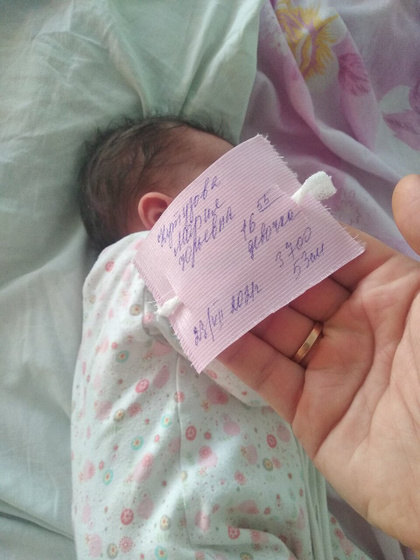 Кутузова
Мария
Юрьевна
16 55
девочка
3700
53см
23/VII 2021г